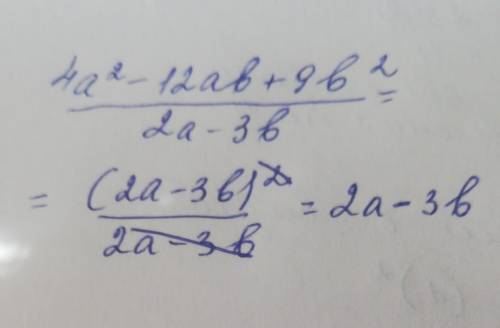 4a² - 12ab + 9b² =
2a - 3b
= (2a - 3b)² = 2a - 3b
2a - 3b